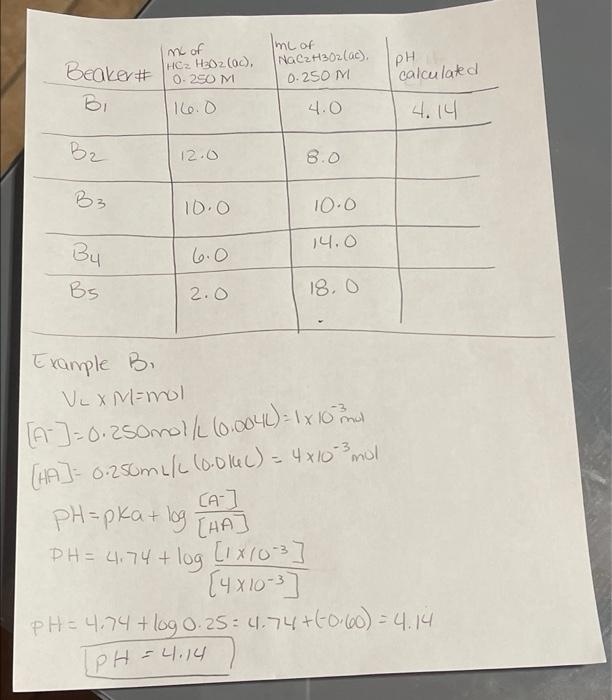 Beaker# mL of HC2H3O2(ac), 0.250M mL of NaC2H3O2(ac), 0.250 M pH calculated
B1 16.0 4.0 4.14
B2 12.0 8.0
B3 10.0 10.0
B4 6.0 14.0
B5 2.0 18.0
Example B1
VL x M=mol
[A-]=0.250mol/L (0.004L)=1x10-3 mol
[HA]= 0.250mL/L (0.016L) = 4x10-3 mol
pH=pKa+log [A-]/[HA]
PH= 4.74+log [1x10-3]/[4x10-3]
pH= 4.74+log 0.25= 4.74+(-0.60) = 4.14
pH = 4.14